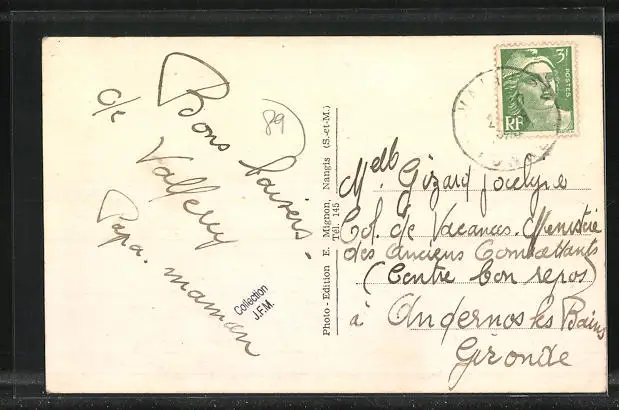 Bons baisers
de Vallery
Papa. maman
89
Collection
J.F.M.
Photo - Edition E. Mignon, Nangis (S.-et-M.)
Tél. 145
3F
POSTES
RF
Melle Gizard Jocelyne
Col. de Vacances. Ministère
des Anciens Combattants
(Centre bon repos)
à Andernos les Bains
Gironde